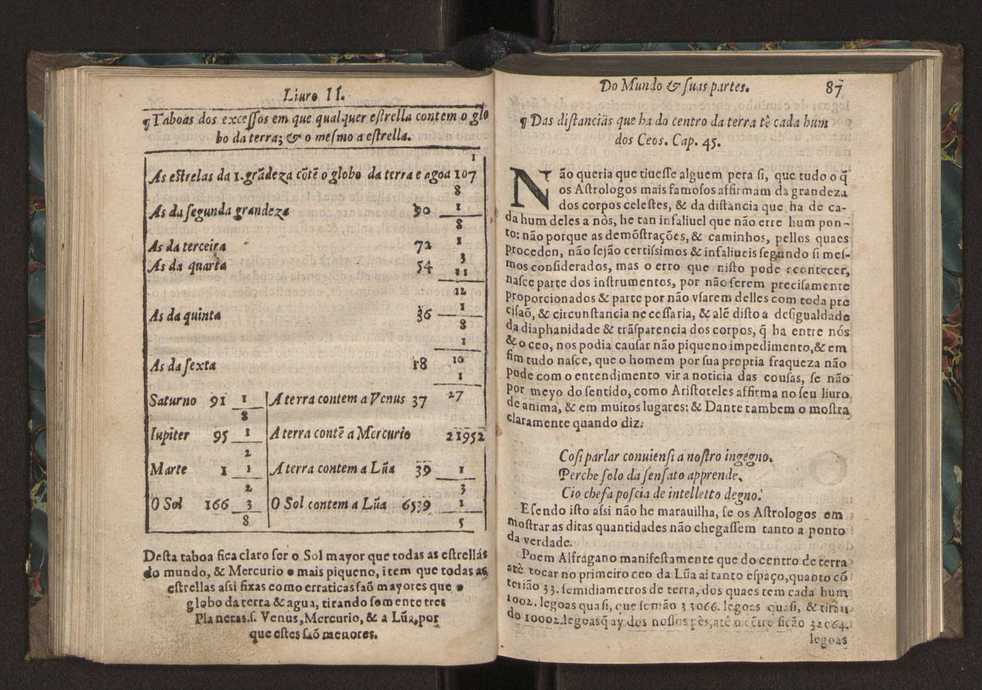 Liuro II.
¶Taboas dos excessos em que qualquer estrella contem o glo
bo da terra; & o mesmo a estrella.
1
As estrelas da 1. grãdeza cõtẽ o globo da terra e agoa 107
8
As da segunda grandeza 90 1
8
As da terceira 72 1
3
As da quarta 54 11
12
As da quinta 36 1
8
1
As da sexta 18 10
1
27
Saturno 91 1 A terra contem a Venus 37
8
Iupiter 95 1 A terra contẽ a Mercurio 21952
2
Marte 1 1 A terra contem a Lũa 39 1
2 3
O Sol 166 3 O Sol contem a Lũa 6539 1
8 5
Desta taboa fica claro ser o Sol mayor que todas as estrellas
do mundo, & Mercurio o mais piqueno, item que todas as
estrellas assi fixas como erraticas saõ mayores que o
globo da terra & agua, tirando somente tres
Planetas.s. Venus, Mercurio, & a Lũa, por
que estes saõ menores.
Do Mundo & suas partes. 87
¶ Das distancias que ha do centro da terra tè cada hum
dos Ceos. Cap. 45.
Não queria que tiuesse alguem pera si, que tudo o q̃
os Astrologos mais famosos affirmam da grandeza
dos corpos celestes, & da distancia que ha de ca-
da hum deles a nòs, he tan infaliuel que não erre hum pon-
to: não porque as demõstrações, & caminhos, pellos quaes
proceden, não sejão certissimos & infaliueis segundo si mes-
mos considerados, mas o erro que nisto pode acontecer,
nasce parte dos instrumentos, por não serem precisamente
proporcionados & parte por não vsarem delles com toda pre
cisaõ, & circunstancia necessaria, & alẽ disto a desigualdade
da diaphanidade & trãsparencia dos corpos, q̃ ha entre nós
& o ceo, nos podia causar não piqueno impedimento, & em
fim tudo nasce, que o homem por sua propria fraqueza não
pode com o entendimento vir a noticia das cousas, se não
por meyo do sentido, como Aristoteles affirma no seu liuro
de anima, & em muitos lugares: & Dante tambem o mostra
claramente quando diz:
Cosi parlar conuiensi a nostro ingegno.
Perche solo da sensato apprende.
Cio chefa poscia de intelletto degno.
E sendo isto assi não he marauilha, se os Astrologos em
mostrar as ditas quantidades não chegassem tanto a ponto
da verdade.
Poem Alfragano manifestamente que do centro de terra
atè tocar no primeiro ceo da Lũa ai tanto espaço, quanto cõ
terião 33. semidiametros de terra, dos quaes tem cada hum
1002. legoas quasi, que semão 33066. legoas quasi, & tiran-
do 10002. legoas q̃ ay dos nossos pès, atè o cẽtro ficão 32064.
legoas